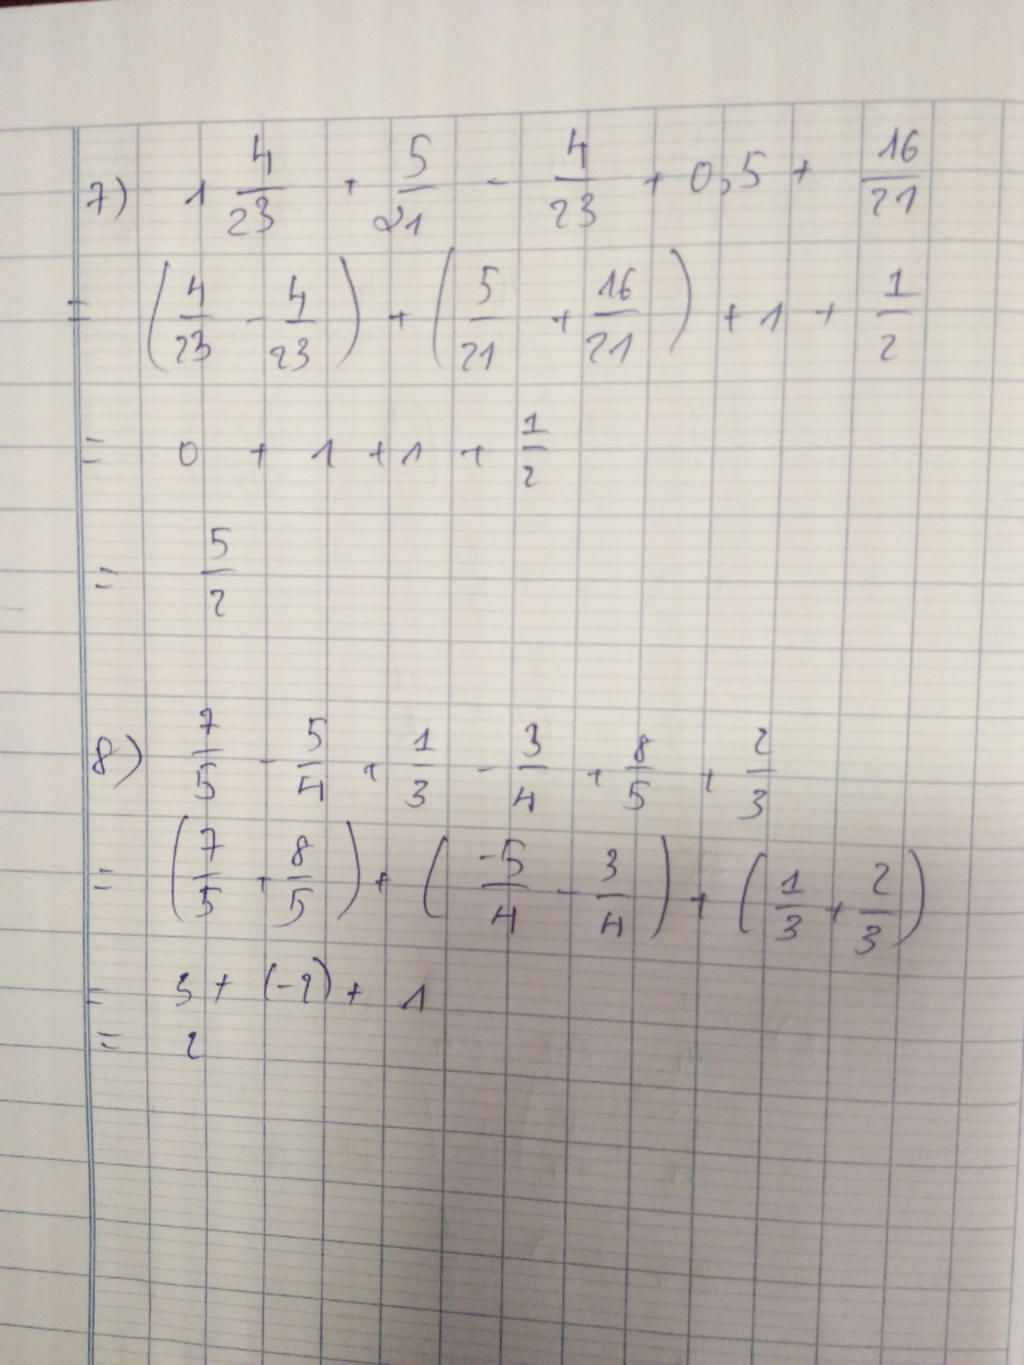 7) 1 4/23 + 5/21 - 4/23 + 0,5 + 16/21
= (4/23 - 4/23) + (5/21 + 16/21) + 1 + 1/2
= 0 + 1 + 1 + 1/2
= 5/2
8) 7/5 - 5/4 + 1/3 - 3/4 + 8/5 + 2/3
= (7/5 + 8/5) + (-5/4 - 3/4) + (1/3 + 2/3)
= 3 + (-2) + 1
= 2